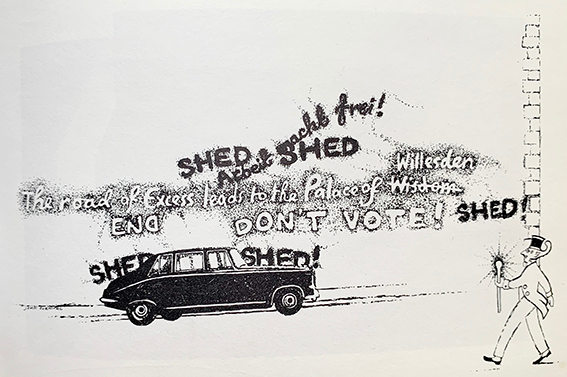 Arbeit macht frei!
SHED SHED
Willesden
The road of Excess leads to the Palace of Wisdom
END DON'T VOTE! SHED!
SHED SHED!